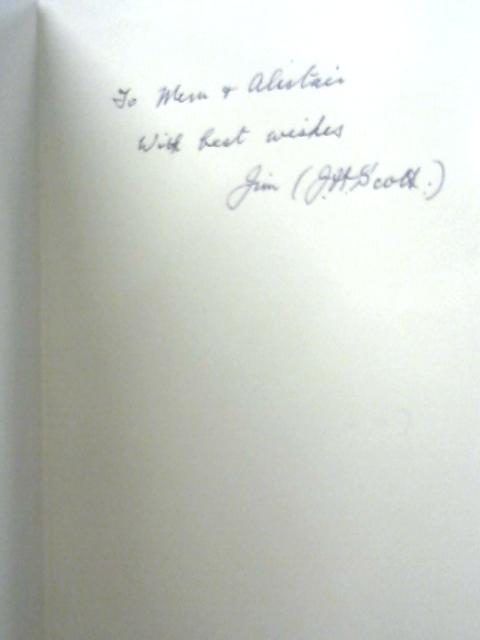 To Mem & Alistair
With best wishes
Jim (J.H. Scott.)